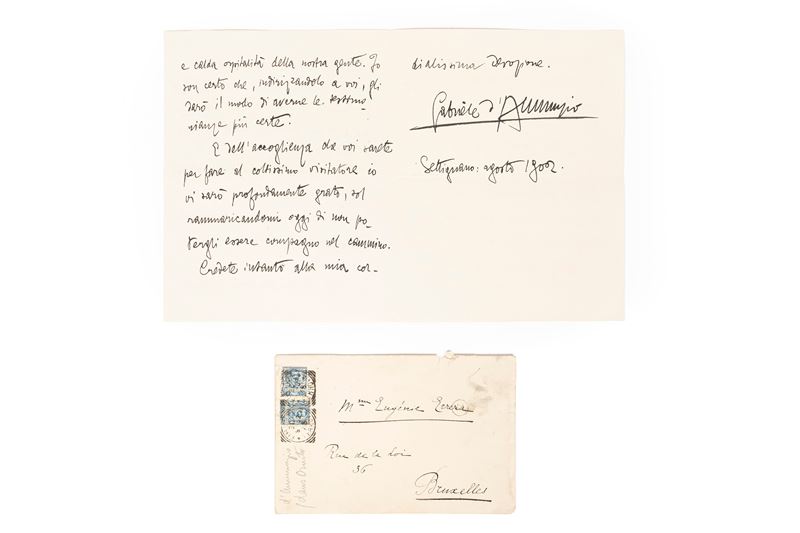 e calda ospitalità della nostra gente. Io
son certo che, indirizzandolo a voi, gli
darò il modo di averne le testimo-
nianze più certe.
E dell'accoglienza da voi sarete
per fare al coltissimo visitatore io
vi sarò profondamente grato, sol
rammaricandomi oggi di non po-
tergli essere compagno nel cammino.
Credete intanto alla mia cor-
dialissima devozione.
Gabriele d'Annunzio
Settignano: agosto 1902.
Mme Eugénie Errera
Rue de la Loi
36
Bruxelles
d'Annunzio